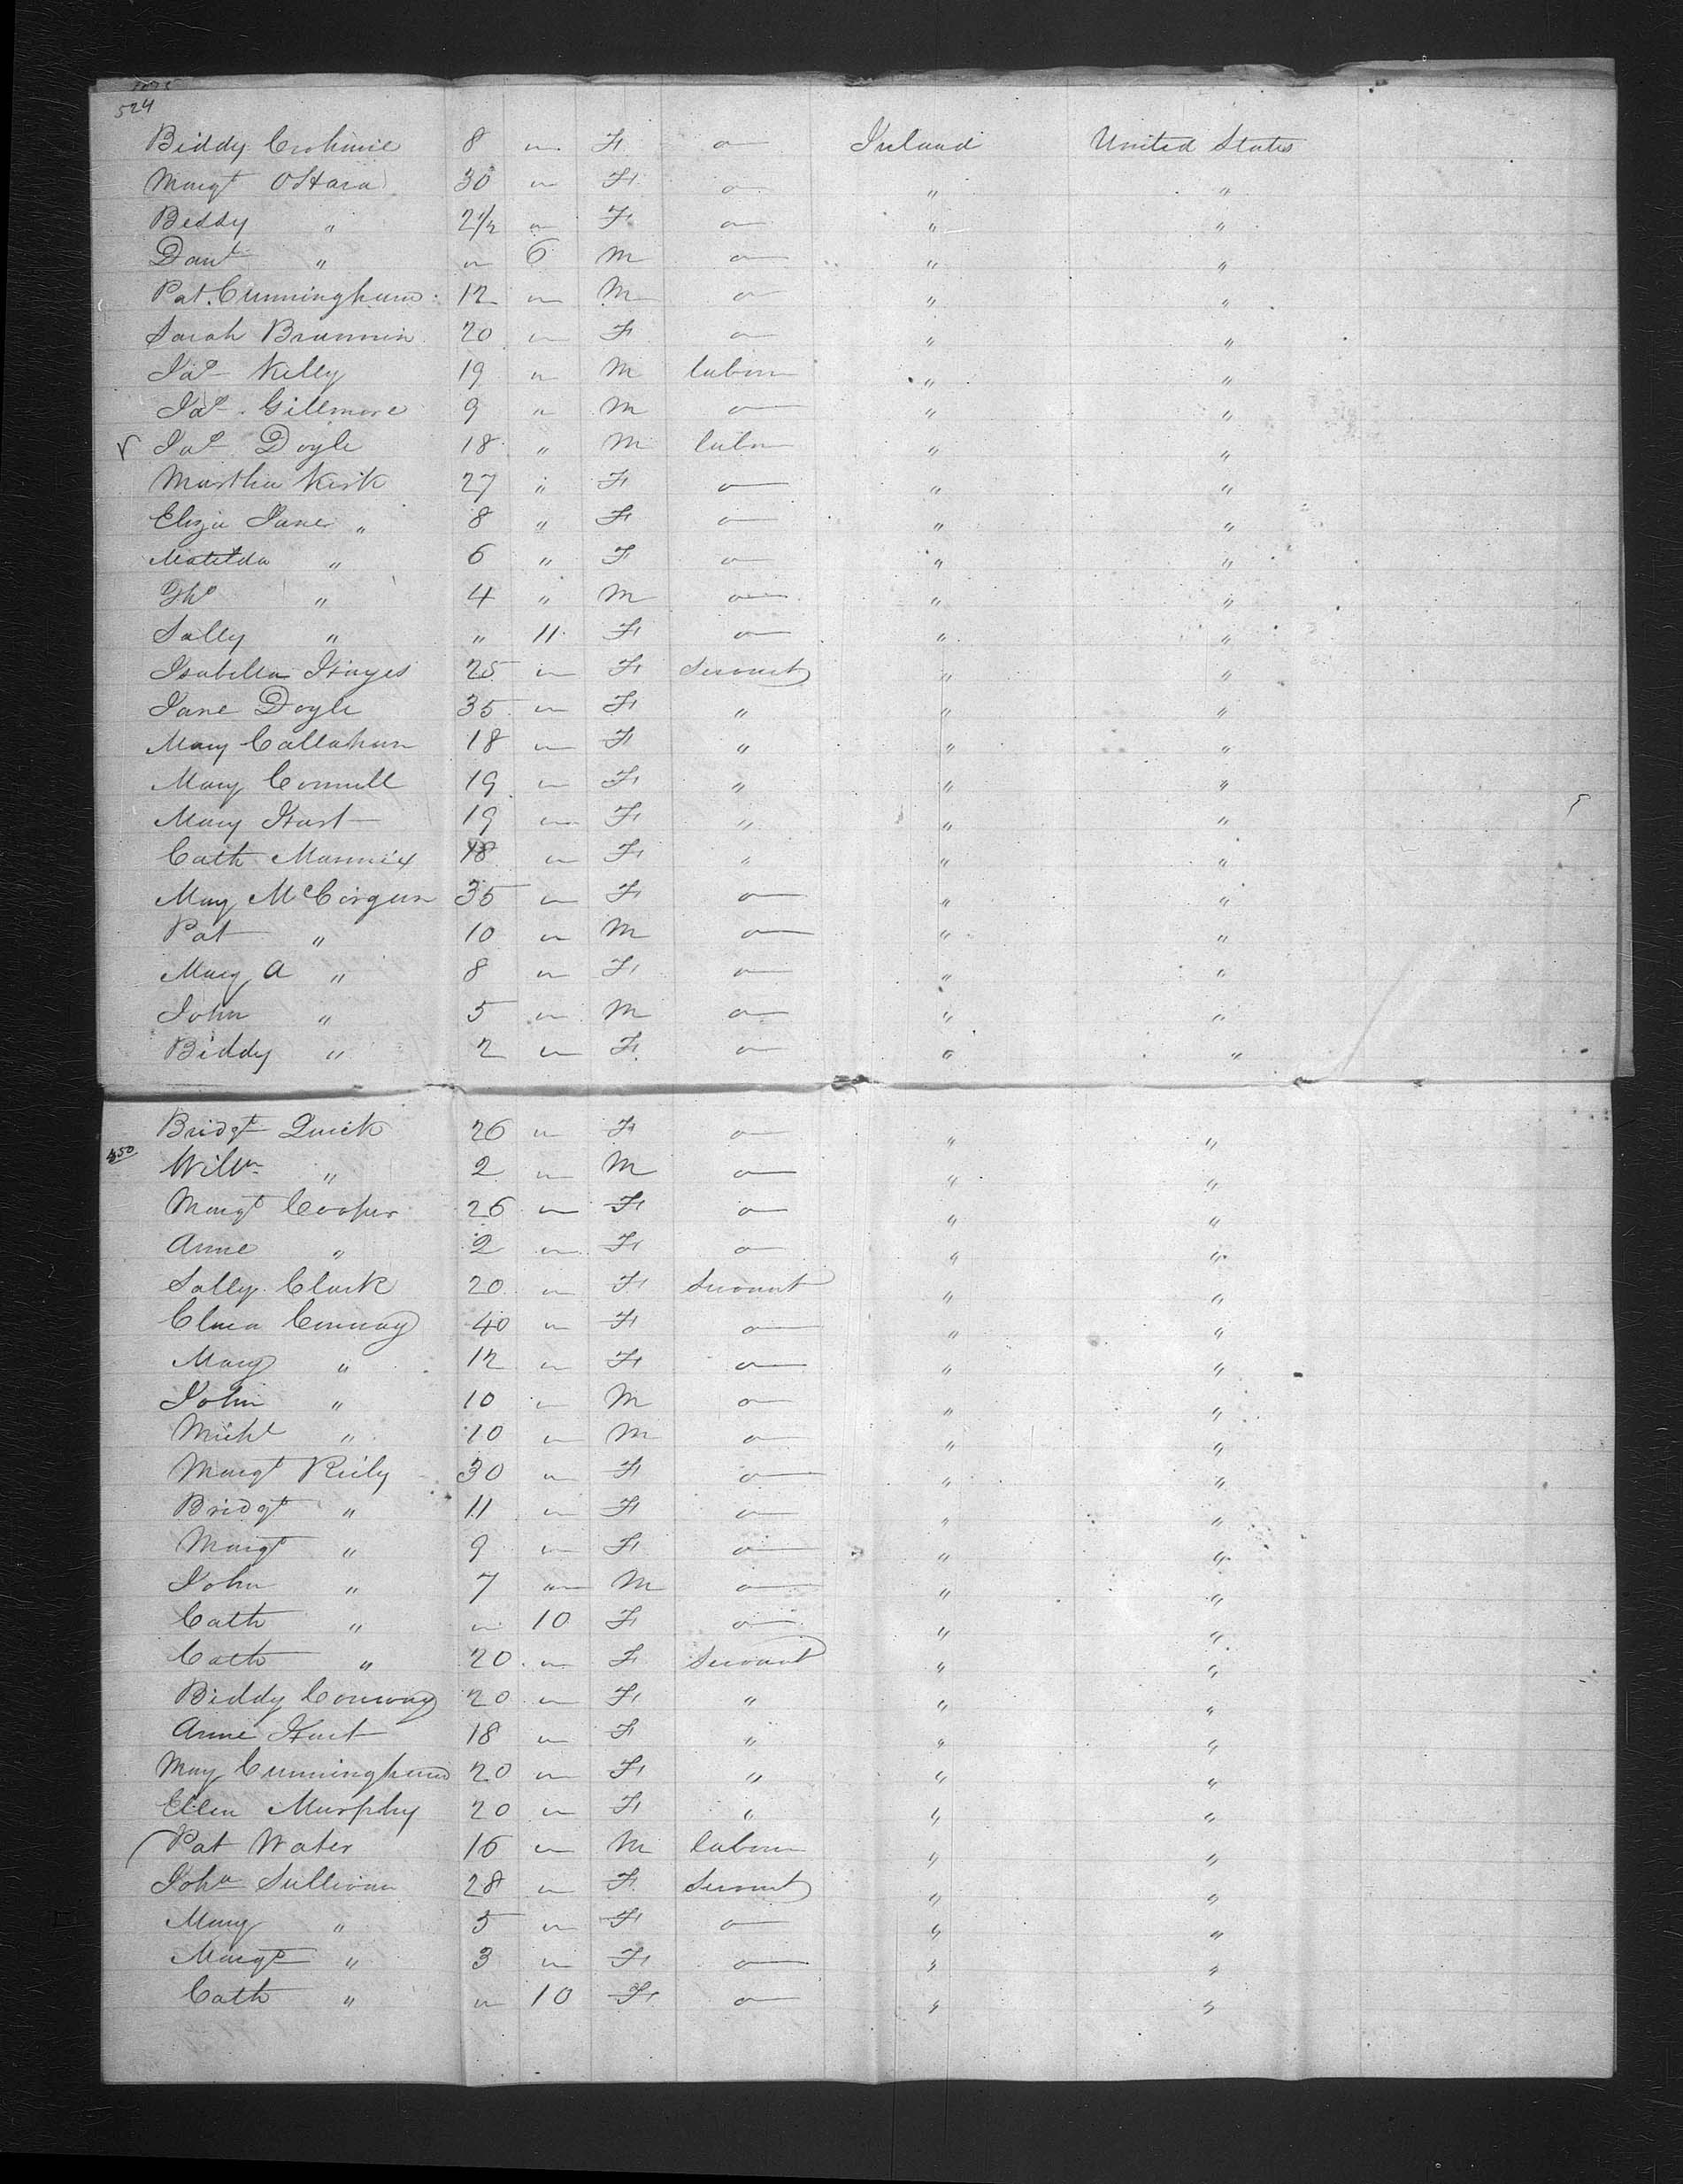 524
Biddy Crohnie 8 " F o Ireland United States
Margt OHara 30 " F o " "
Biddy " 2 1/2 " F o " "
Danl " " 6 M o " "
Pat. Cunningham 12 " M o " "
Sarah Brannin 20 " F o " "
Jas Kelly 19 " M labour " "
Jas Gillmore 9 " M o " "
Jas Doyle 18 " M labour " "
Martha Kirk 27 " F o " "
Eliza Jane " 8 " F o " "
Matilda " 6 " F o " "
Tho " 4 " M o " "
Sally " " 11 F o " "
Isabella Hayes 25 " F Servant " "
Jane Doyle 35 " F " " "
Mary Callahan 18 " F " " "
Mary Connell 19 " F " " "
Mary Hart 19 " F " " "
Cath Mannix 18 " F " " "
Mary McCorgan 35 " F o " "
Pat " 10 " M o " "
Mary A " 8 " F o " "
John " 5 " M o " "
Biddy " 2 " F o " "
Bridgt Quick 26 " F o " "
450
Willm " 2 " M o " "
Margt Cooper 26 " F o " "
Anne " 2 " F o " "
Sally Clark 20 " F Servant " "
Conway 40 " F o " "
Mary " 12 " F o " "
John " 10 " M o " "
Michl " 10 " M o " "
Margt Reily 30 " F o " "
Bridgt " 11 " F o " "
Margt " 9 " F o " "
John " 7 " M o " "
Cath " " 10 F o " "
Cath " 20 " F Servant " "
Biddy Conway 20 " F " " "
Anne Hart 18 " F " " "
Mary Cunningham 20 " F " " "
Ellen Murphy 20 " F " " "
Pat Water 16 " M labour " "
Joha Sullivan 28 " F Servant " "
Mary " 5 " F o " "
Margt " 3 " F o " "
Cath " " 10 F o " "